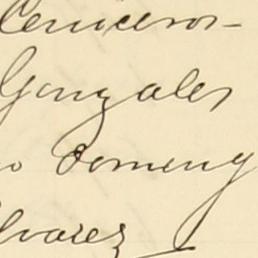 Ceniceros-
Gonzales
o Domeny
lvarez